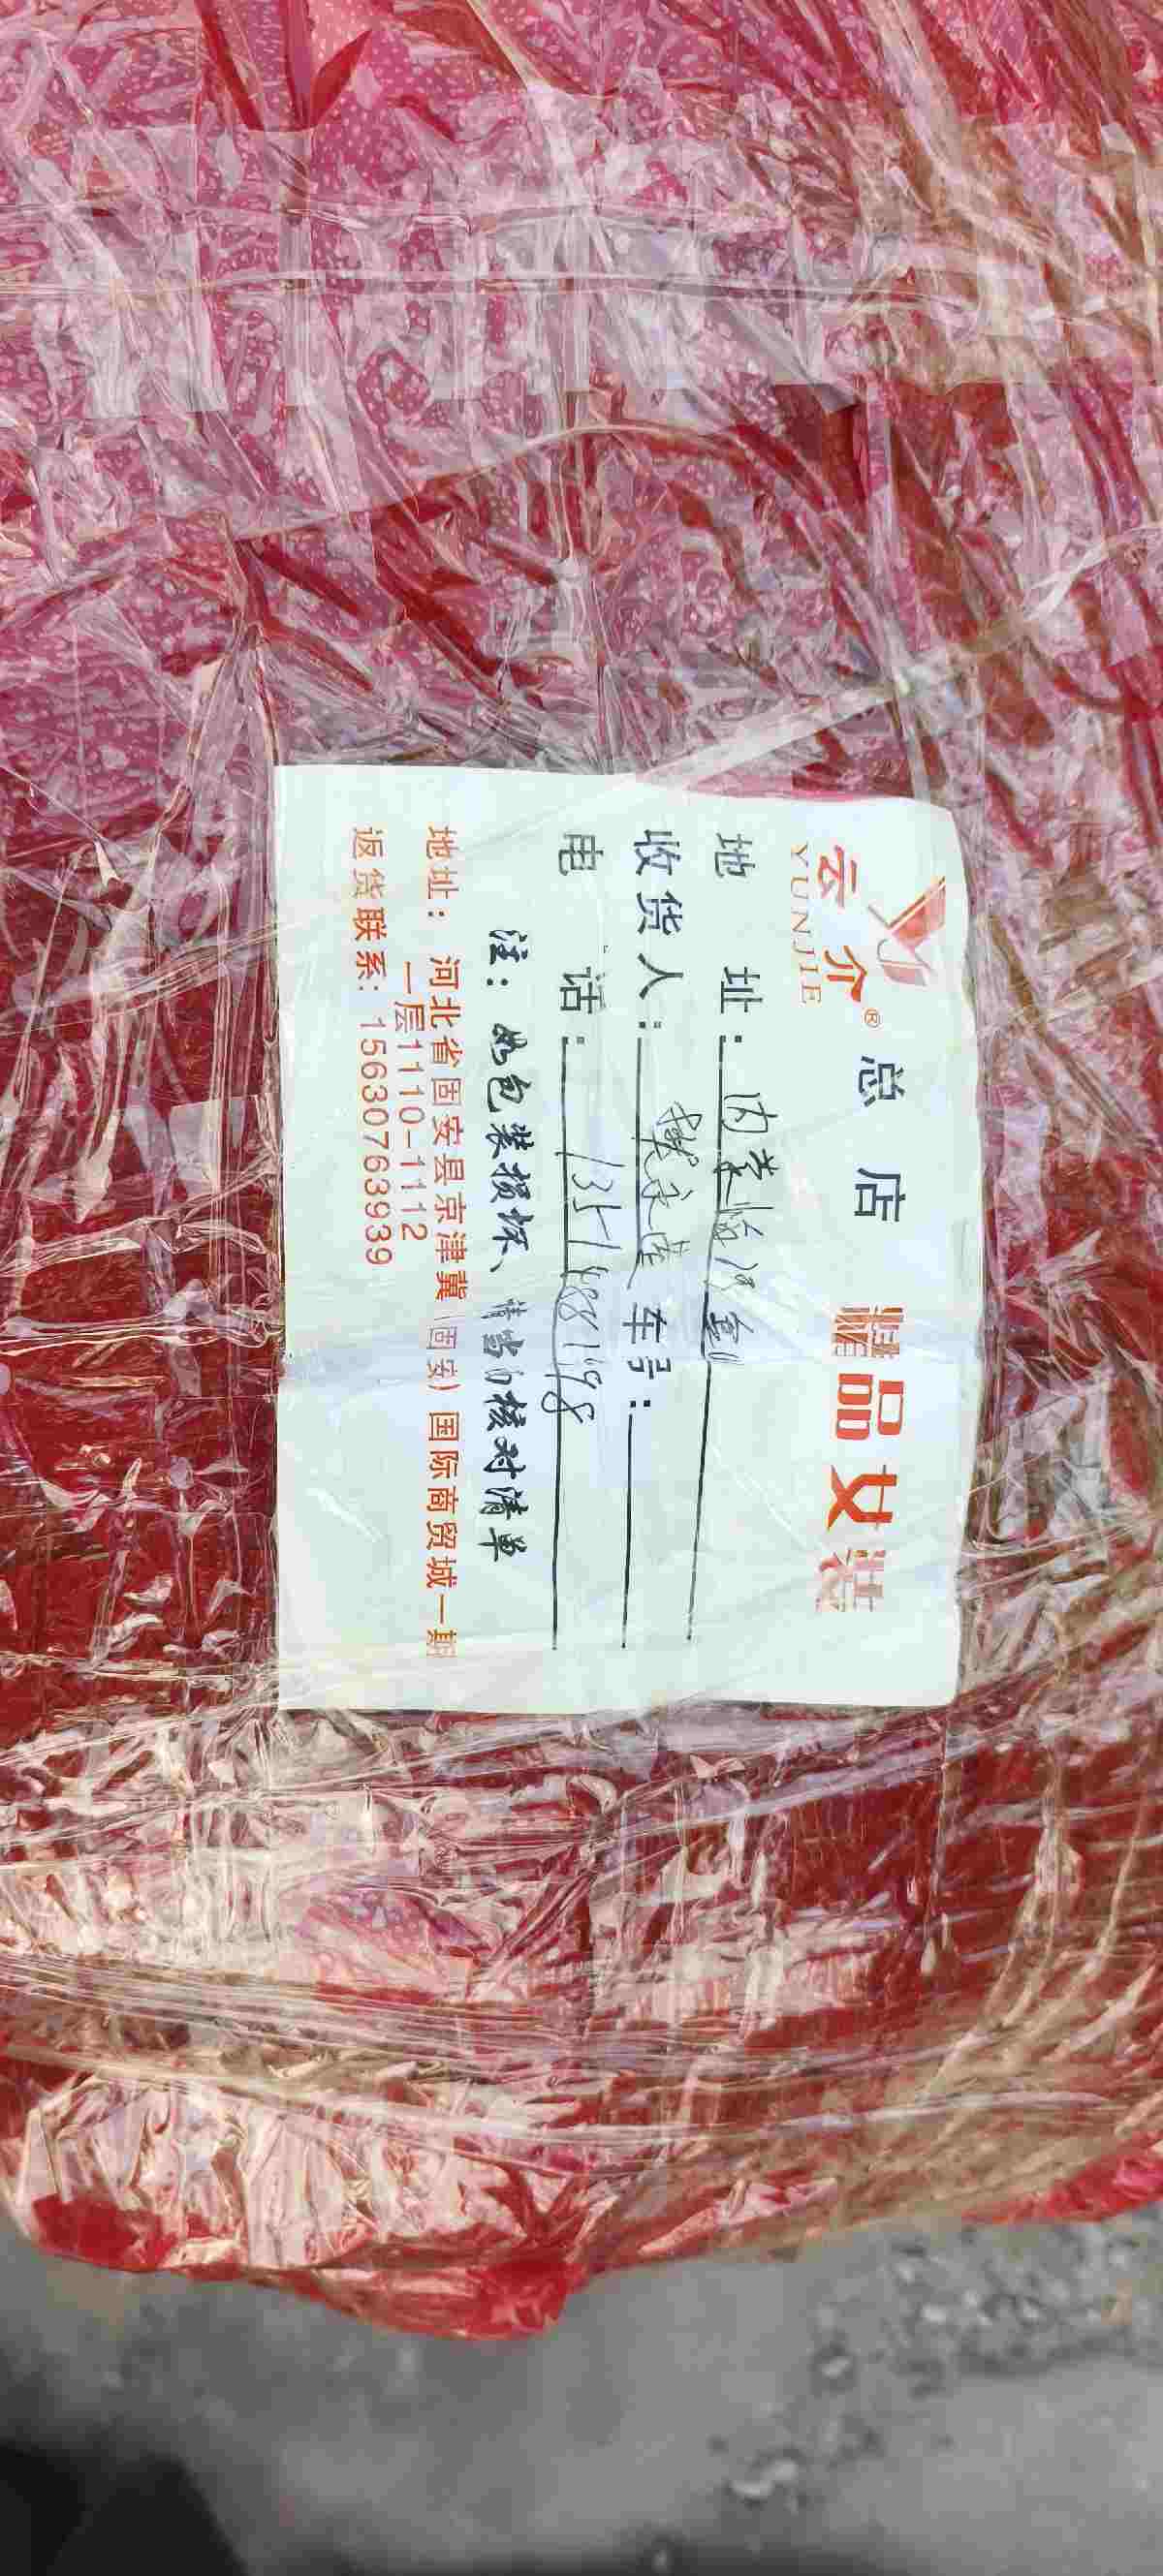 云介® 总店 精品女装
YUNJIE
地址：内蒙临河
收货人： 车号：
电话：
注：如包装损坏、请当的核对清单
地址：河北省固安县京津冀(固安)国际商贸城一期
一层1110-1112
返货联系：15630763939